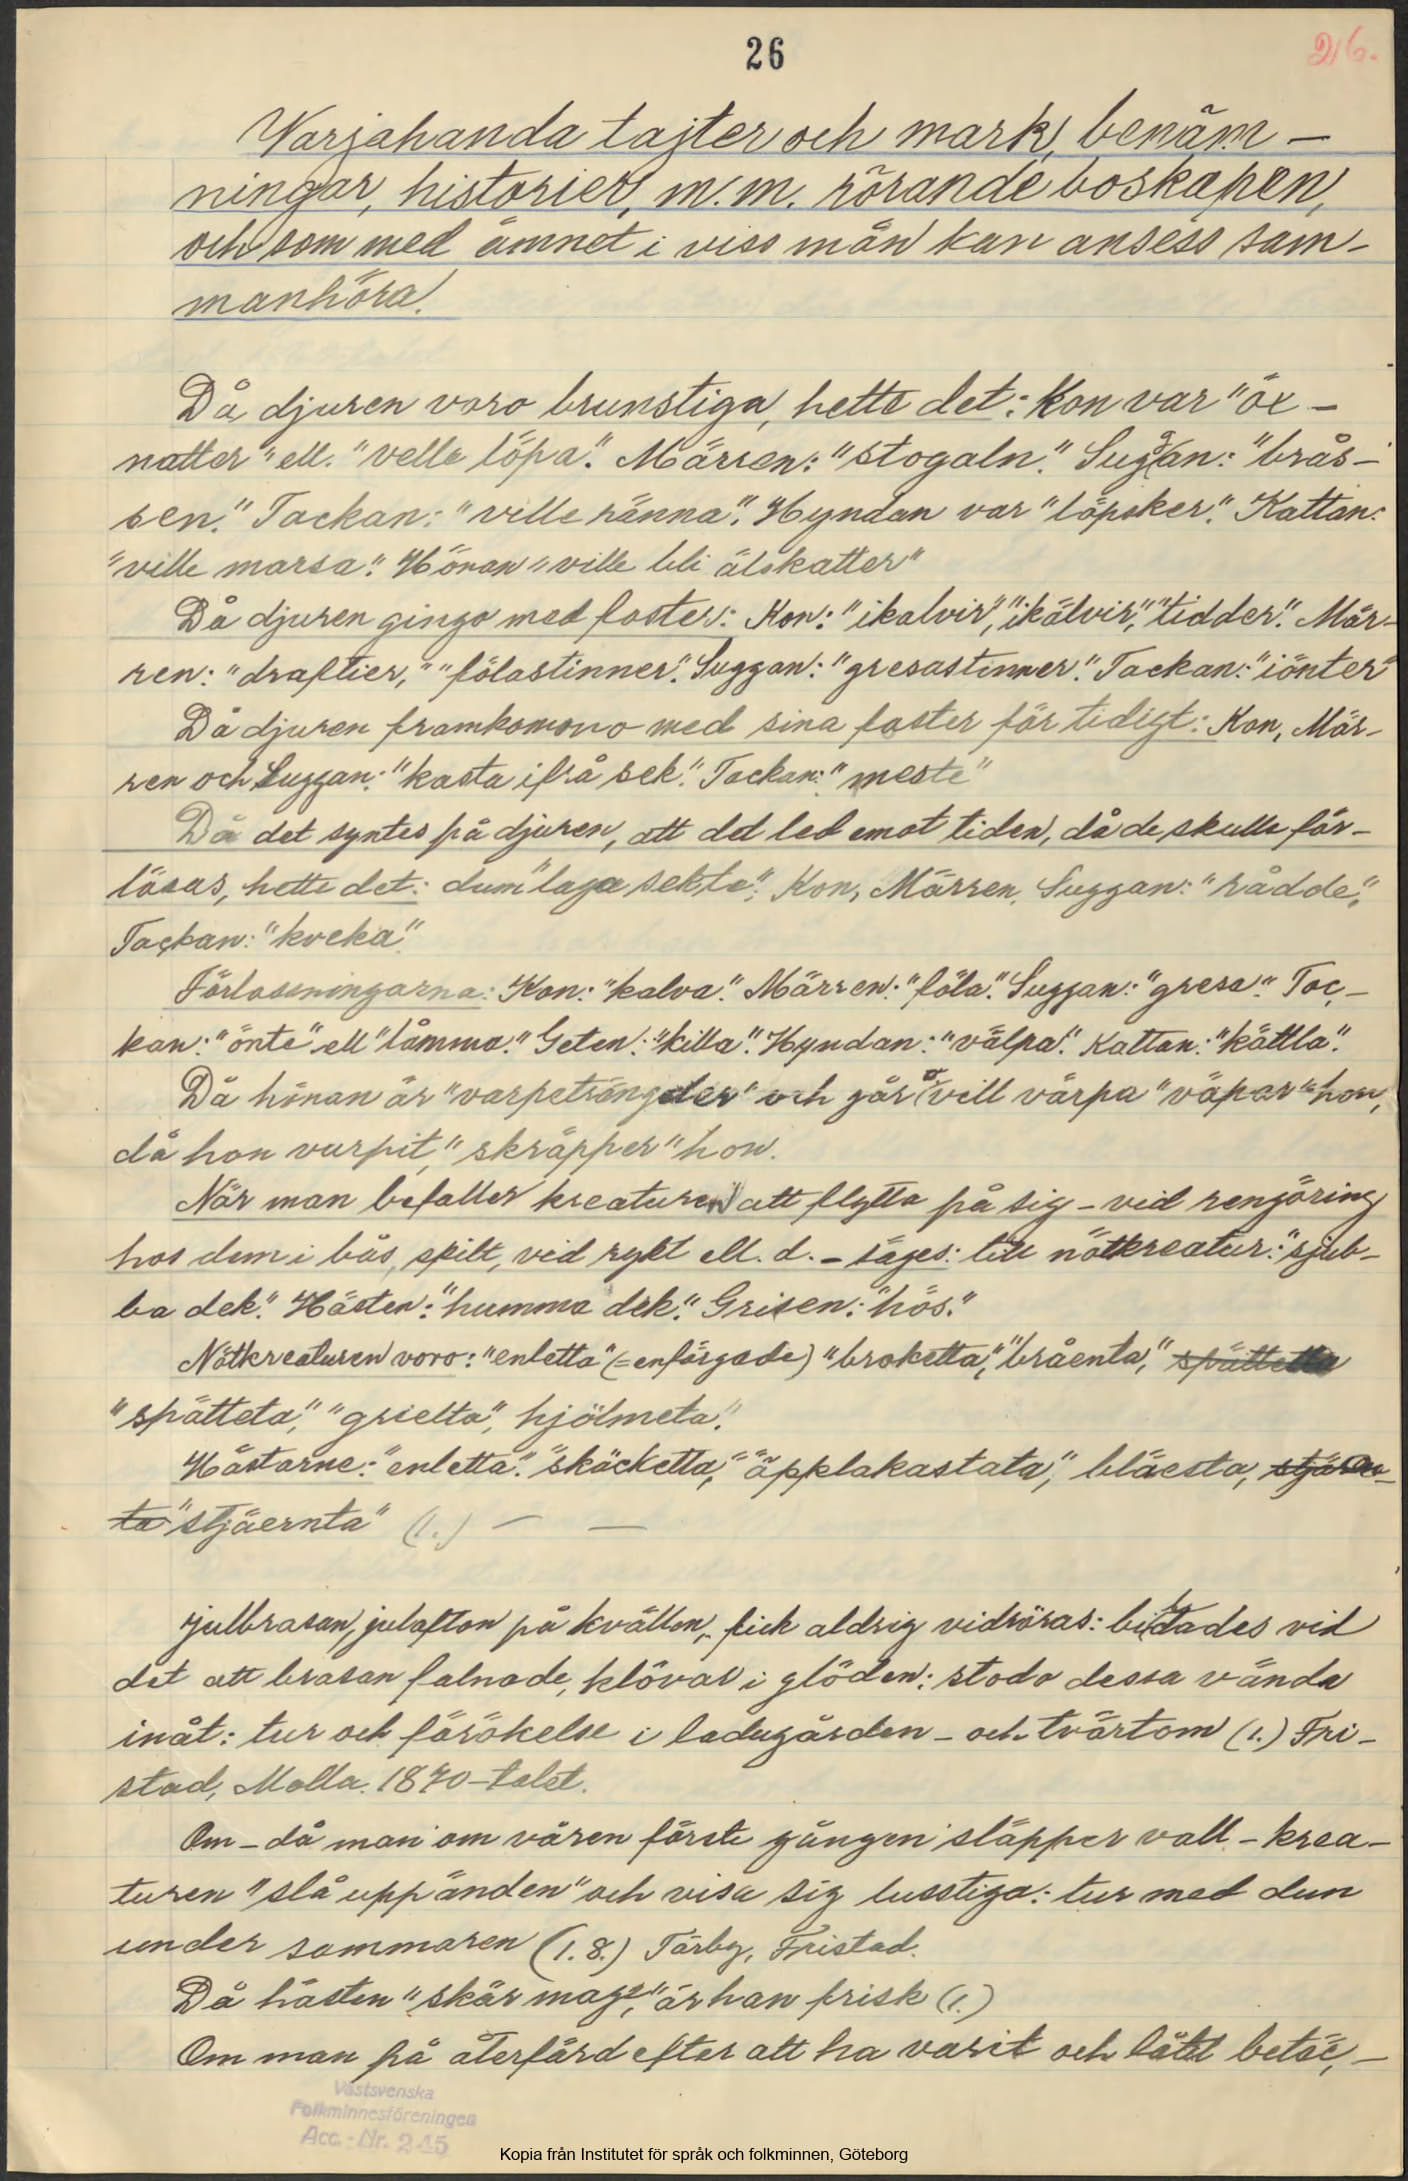 26
26.
Varjahanda tajter och mark, benäm-
ningar, historier, m.m. rörande boskapen,
och som med ämnet i viss mån kan anses sam-
manhöra.
Då djuren voro brunstiga, hette det: Kon var "öx-
natter" ell. "velle löpa". Märren: "stogaln." Suggan: "brås-
sen." Tackan: "ville ränna". Hyndan var "löpsker." Kattan:
"ville marsa". Hönan "ville bli älskatter"
Då djuren gingo med foster: Kon: "ikalvir", "ikälvir", "tidder". Mär-
ren: "draftier," "fölastinner". Suggan: "gresastinner". Tackan: "iönter"
Då djuren framkommo med sina foster för tidigt: Kon, Mär-
ren och Suggan: "kasta ifrå sek". Tackan: "meste"
Då det syntes på djuren, att det led emot tiden, då de skulle för-
lösas, hette det: dum "laga sekte". Kon, Märren, Suggan: "rådde",
Tackan: "kveka".
Förlossningarna: Kon: "kalva". Märren: "föla". Suggan: "gresa". Tac-
kan: "önte" ell "låmma." Geten: "killa". Hyndan: "välpa". Kattan: "kättla".
Då hönan är "varpeträngder" och går o vill värpa "väpar" hon,
då hon vurpit, "skräpper" hon.
När man befaller kreaturen att flytta på sig - vid rengöring
hos dem i bås, spilt, vid rykt ell. d. - säges: till nötkreatur: "sjub-
ba dek". Hästen: "humma dek". Grisen: "hös."
Nötkreaturen voro: "enletta" (= enfärgade) "broketta", "bråenta", spättetta
"spätteta", "grielta", hjölmeta".
Hästarne: "enletta". "skäcketta", "äpplakastata", bläesta, stjärn-
ta "stjäernta" (1.) — —
Julbrasan, julafton på kvällen, fick aldrig vidröras: bildades vid
det att brasan falnade, klövar i glöden: stodo dessa vända
inåt: tur och förökelse i ladugården - och tvärtom (1.) Fri-
stad, Molla. 1870-talet.
Om - då man om våren förste gången släpper vall - krea-
turen "slå upp änden" och visa sig lusstiga: tur med dun
under sommaren (1.8.) Tärby, Fristad.
Då hästen "skär mage", är han frisk (1.)
Om man på återfärd efter att ha varit och låtit betäc-
Västsvenska
Folkminnesföreningen
Acc.-Nr. 245
Kopia från Institutet för språk och folkminnen, Göteborg